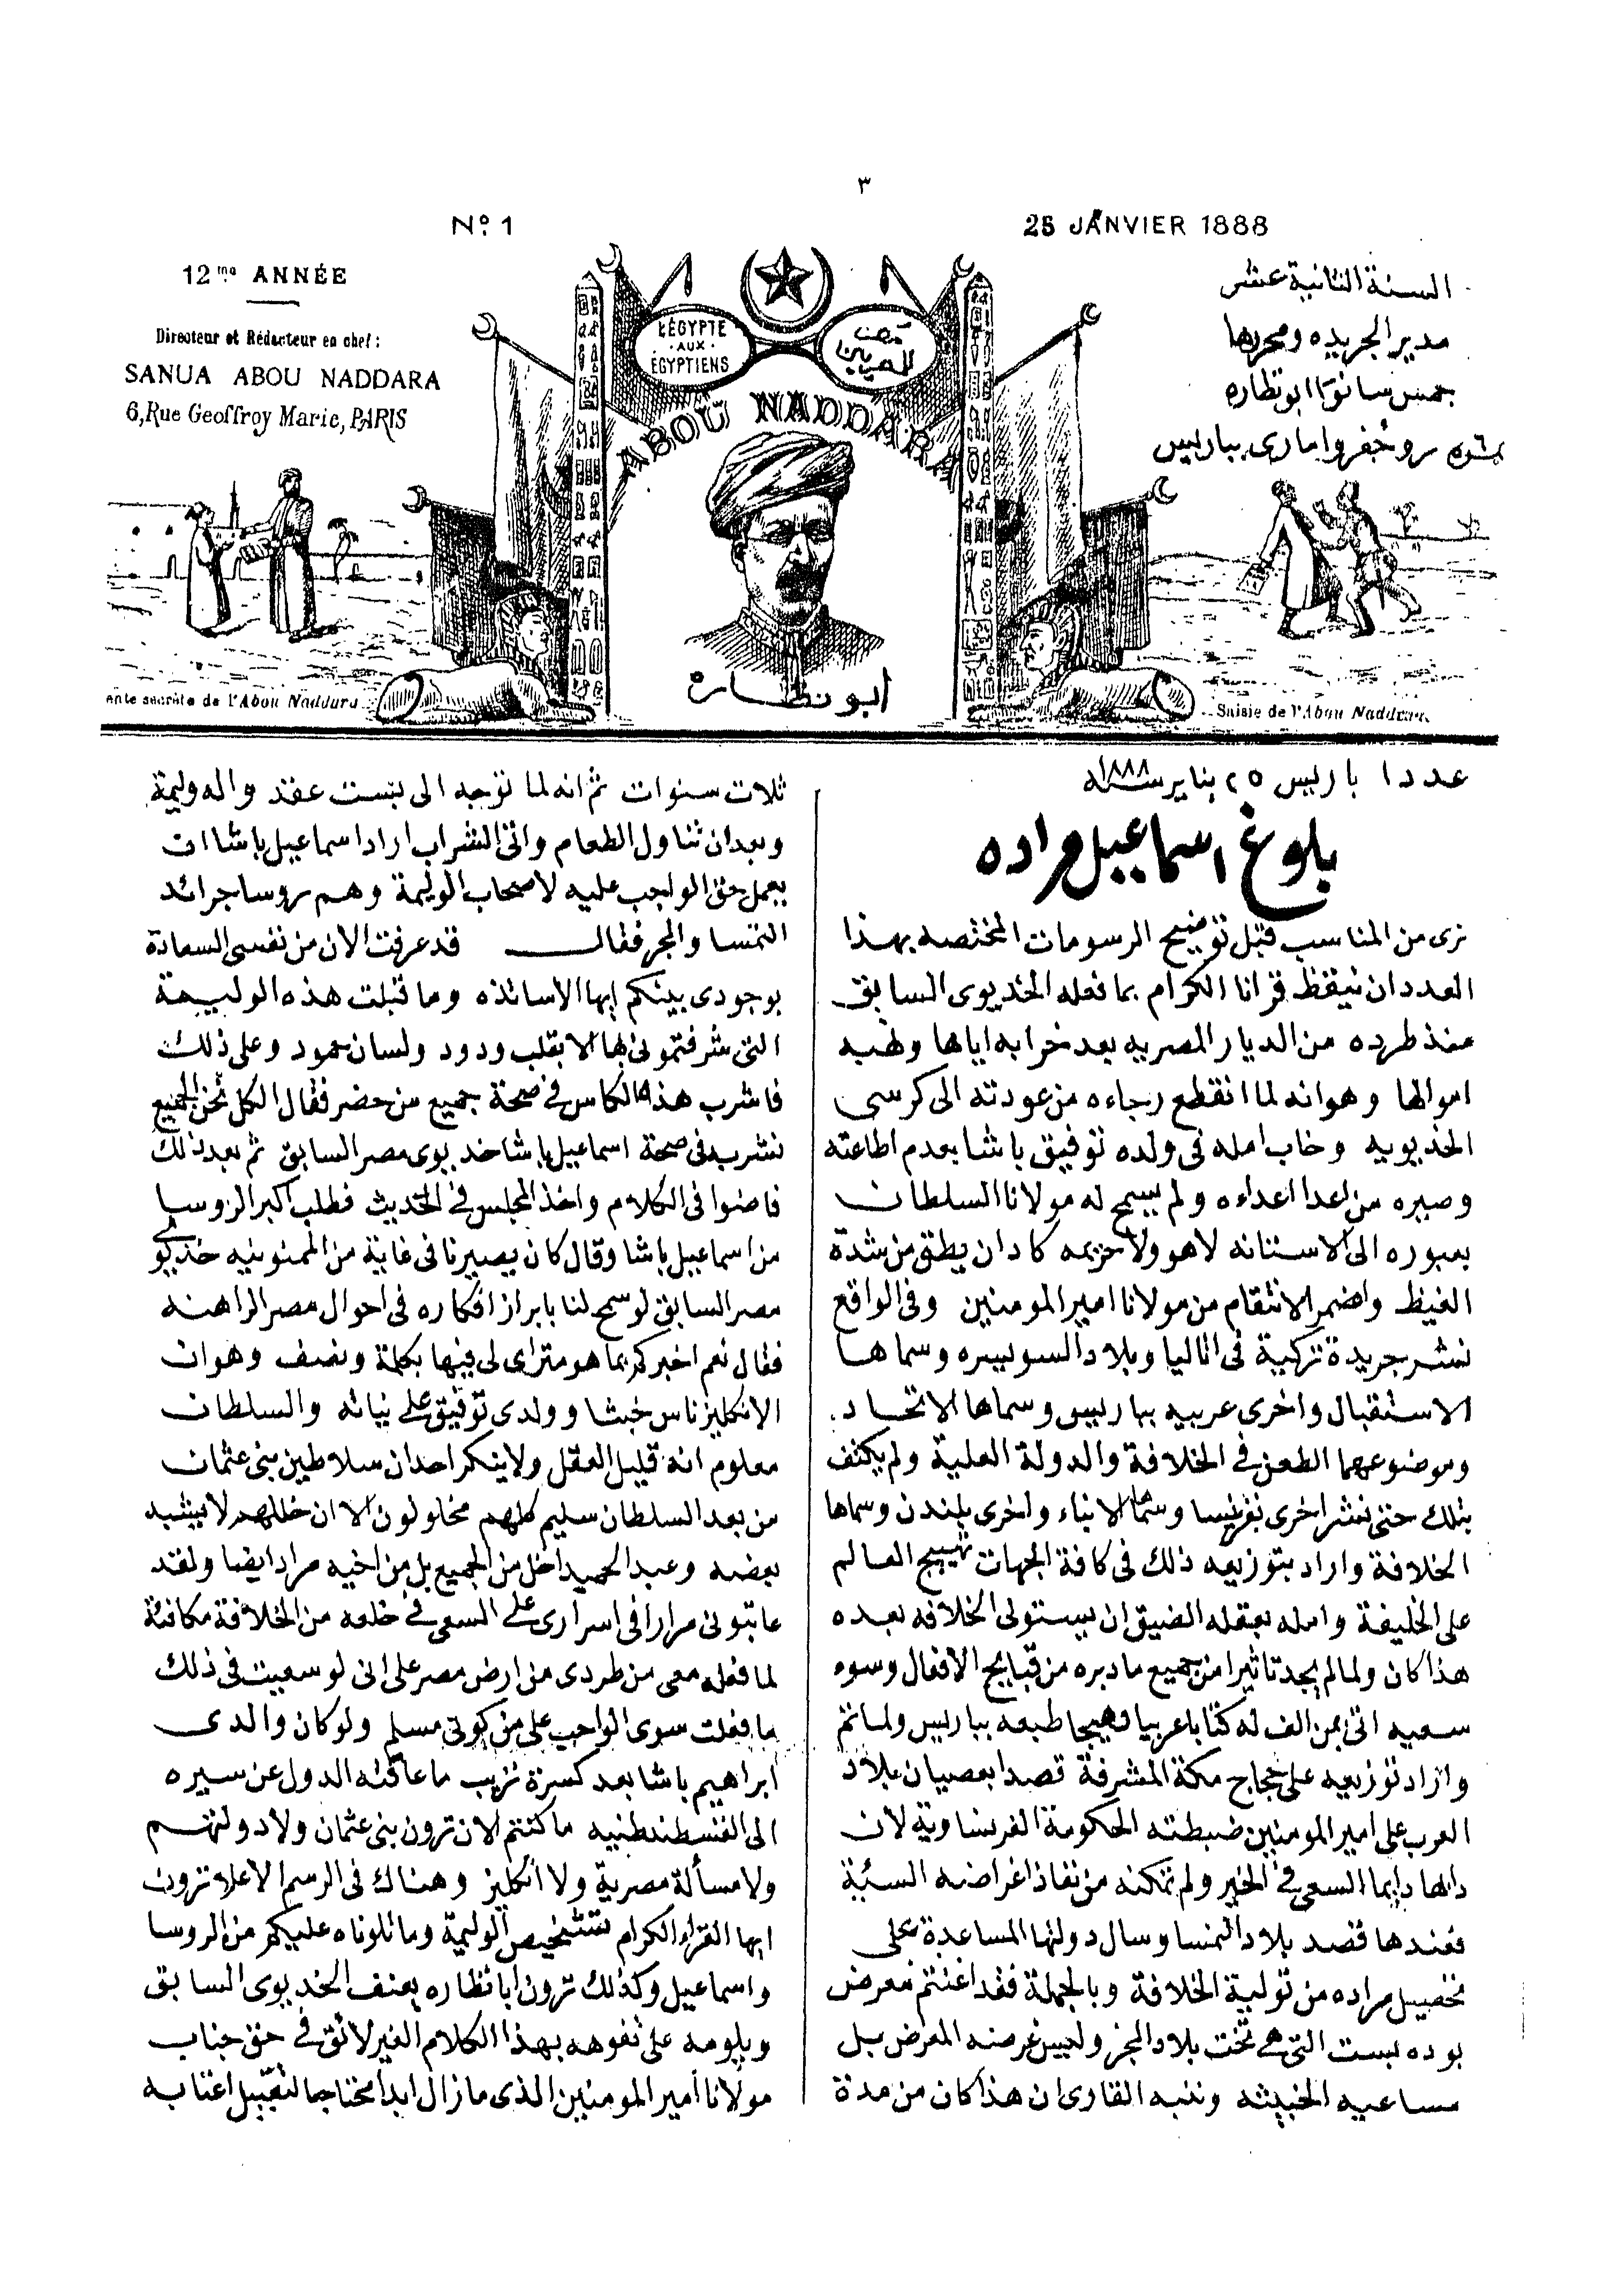 ٣
Nº. 1
25 JANVIER 1888
12me ANNÉE
Directeur et Rédacteur en chef:
SANUA ABOU NADDARA
6, Rue Geoffroy Marie, PARIS
السنة الثانية عشر
مدير الجريده ومحررها
جمس سانوا ابو نظاره
نمره ٦ رو جفروا ماري بباريس
L'ÉGYPTE
AUX
ÉGYPTIENS
مصر
للمصريين
ABOU NADDARA
ابو نظاره
ente secrète de l'Abou Naddara
Saisie de l'Abou Naddara
عدد ١ باريس ٢٥ يناير سنة ١٨٨٨
بلوغ اسماعيل مراده
نرى من المناسب قبل توضيح الرسومات المختصه بهذا
العدد ان نيقظ قرانا الكرام بما فعله الخديوى السابق
منذ طرده من الديار المصريه بعد خرابه اياها ونهبه
اموالها وهو انه لما انقطع رجاءه من عودته الى كرسى
الخديويه وخاب امله فى ولده توفيق باشا بعدم اطاعته
وصيره من اعدا اعداءه ولم يسمح له مولانا السلطان
بعبوره الى الاستانه لا هو ولا حريمه كاد ان يطق من شدة
الغيظ واضمر الانتقام من مولانا امير المومنين وفى الواقع
نشر جريدة تركية فى اتاليا وبلاد السويسره وسماها
الاستقبال واخرى عربيه بباريس وسماها الاتحاد.
وموضوعهما الطعن فى الخلافة والدولة العلية ولم يكتف
بتلك حتى نشر اخرى بفرنسا وسماها الانباء واخرى بلندن وسماها
الخلافة واراد بتوزيعه ذلك فى كافة الجهات تهييج العالم
على الخليفة وامله بعقله الضيق ان يستولى الخلافه بعده
هذا كان ولما لم يجد تاثيرا من جميع ما دبره من قبايح الافعال وسوء
سعيه اتى بمن الف له كتابا عربيا وهيجا طبعه بباريس ولما تم
واراد توزيعه على حجاج مكة المشرفة قصدا بعصيان بلاد
العرب على امير المومنين ضبطته الحكومة الفرنساوية لان
دابها دايما السعى فى الخير ولم تمكنه من نفاذ اغراضه السئية
فعندها قصد بلاد النمسا وسال دولتها المساعدة على
تحصيل مراده من تولية الخلافة وبالجملة فقد اغتنم معرض
بوده بست التى هى تخت بلاد المجر وليس غرضه المعرض بل
مساعيه الخبيثه وننبه القارى ان هذا كان من مدة
ثلاث سنوات ثم انه لما توجه الى بتست عقد واله وليمة
وبعد ان تناول الطعام واتى الشراب اراد اسماعيل باشا ان
يعمل حق الواجب عليه لاصحاب الوليمة وهم روسا جرائد
النمسا والمجر فقال قد عرفت الان من نفسى السعادة
بوجودى بينكم ايها الاساتذه وما قبلت هذه الوليمة
التى شرفتمونى بها الا بقلب ودود ولسان حمود وعلى ذلك
فاشرب هذا الكاس فى صحة جميع من حضر فقال الكل نحن الجميع
نشرب فى صحة اسماعيل باشا خديوى مصر السابق ثم بعد ذلك
فاضوا فى الكلام واخذ المجلس فى الحديث فطلب اكبر الروسا
من اسماعيل باشا وقال كان يصيرنا فى غاية من الممنونيه خديوى
مصر السابق لو سمح لنا بابراز افكاره فى احوال مصر الراهنه
فقال نعم اخبركم بما هو متراى لى فيها بكلمة ونصف وهو ان
الانكليز ناس خبثا وولدى توفيق على نياته والسلطان
معلوم انه قليل العقل ولا ينكر احد ان سلاطين بنى عثمان
من بعد السلطان سليم كلهم مخلولون الا ان خللهم لا يشبه
بعضه وعبد الحميد اخل من الجميع بل من اخيه مراد ايضا ولقد
عاتبونى مرارا فى اسرارى على السعى فى خلعه من الخلافة مكافئة
لما فعله معى من طردى من ارض مصر على انى لو سعيت فى ذلك
ما فعلت سوى الواجب على من كونى مسلم ولو كان والدى
ابراهيم باشا بعد كسرة نزيب ما عاقته الدول عن سيره
الى القسطنطنيه ما كنتم الان ترون بنى عثمان ولا دولتهم
ولا مسألة مصرية ولا انكليز وهناك فى الرسم الاعلا ترون
ايها القراء الكرام تشخيص الوليمة وما تلوناه عليكم من الروسا
واسماعيل وكذلك ترون ابا نظاره يعنف الخديوى السابق
ويلومه على تفوهه بهذا الكلام الغير لائق فى حق جناب
مولانا أمير المومنين الذى ما زال ابدا محتاجا لتقبيل اعتابه